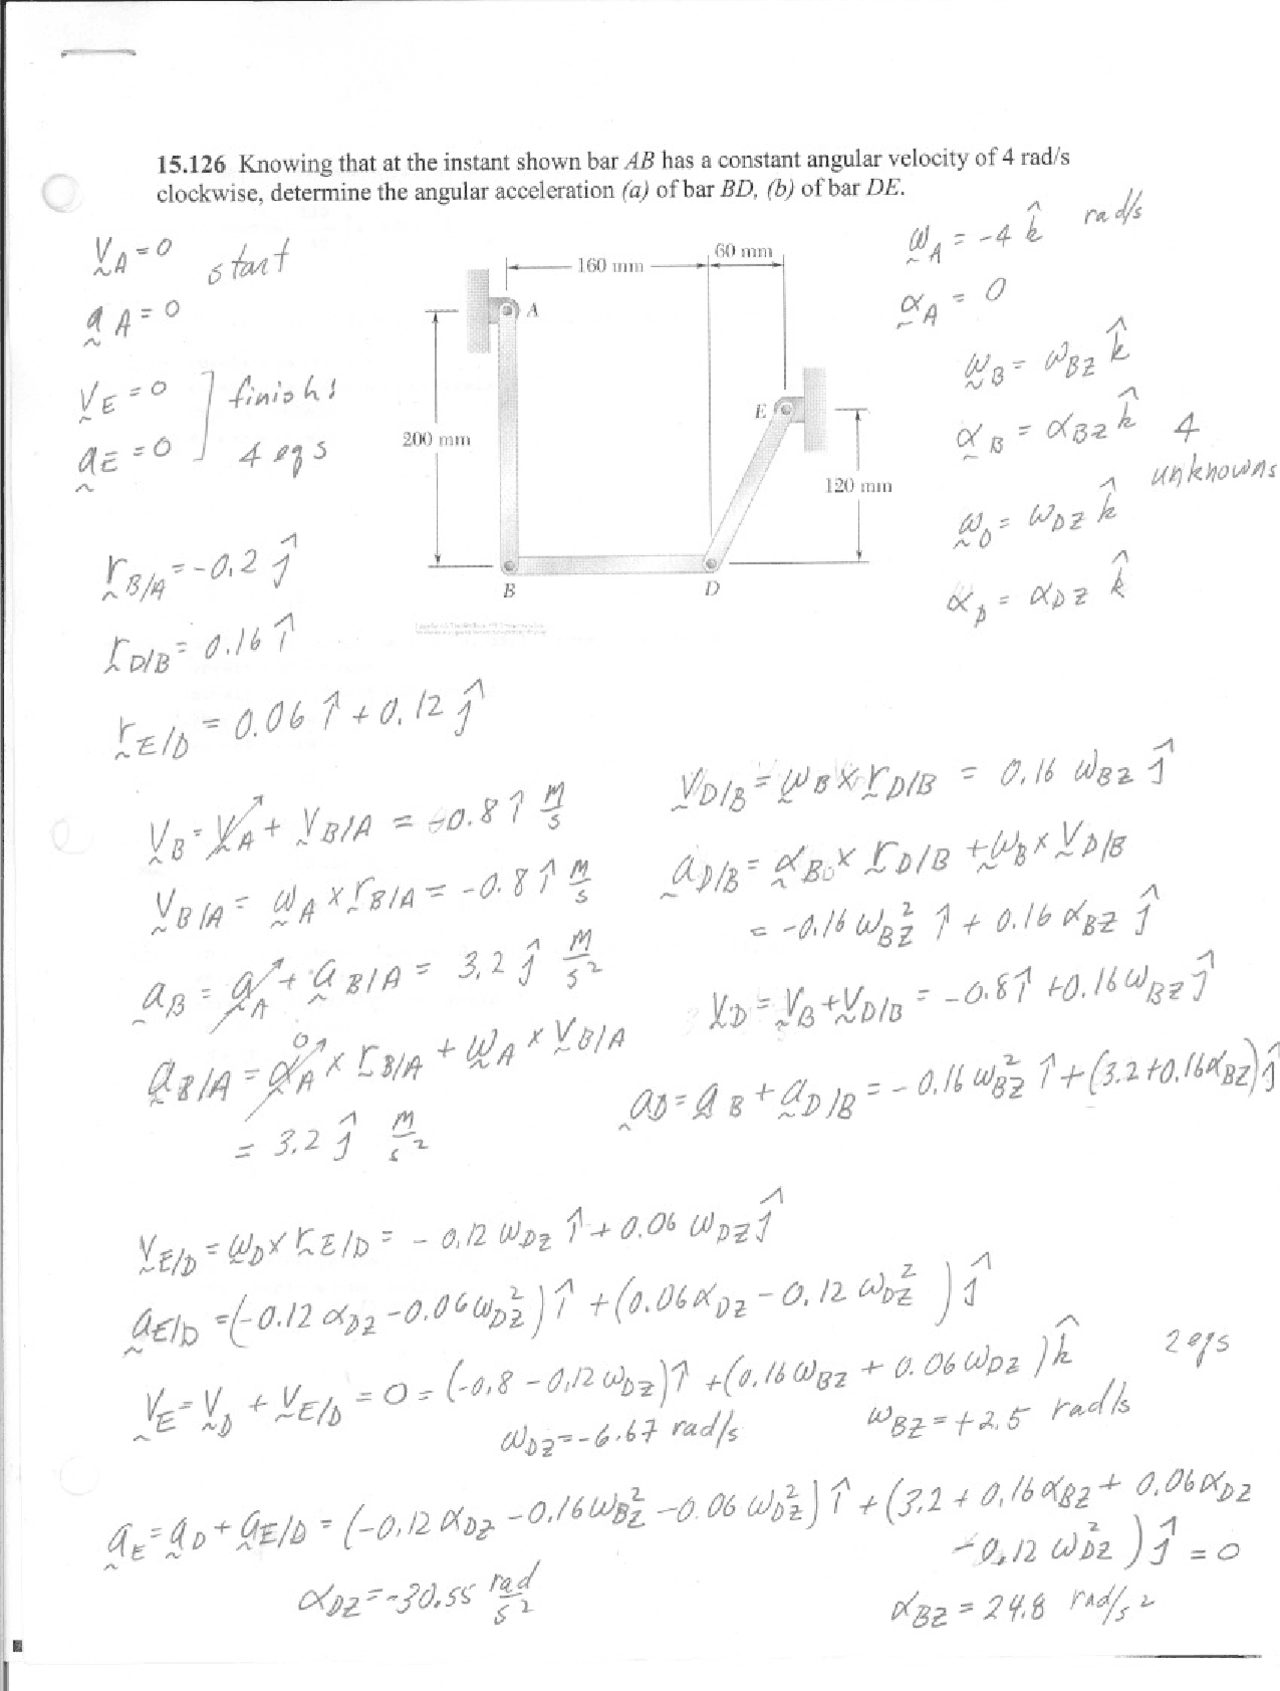 15.126 Knowing that at the instant shown bar AB has a constant angular velocity of 4 rad/s
clockwise, determine the angular acceleration (a) of bar BD, (b) of bar DE.
V_A = 0 start
a_A = 0
V_E = 0 ] finish:
a_E = 0 ] 4 eqs
ω_A = -4 k̂ rad/s
α_A = 0
ω_B = ω_BZ k̂
α_B = α_BZ k̂ 4
unknowns
ω_D = ω_DZ k̂
α_D = α_DZ k̂
160 mm
60 mm
A
E
200 mm
120 mm
B
D
r_B/A = -0.2 ĵ
r_D/B = 0.16 î
r_E/D = 0.06 î + 0.12 ĵ
V_B = V_A + V_B/A = -0.8 î m/s
V_B/A = ω_A × r_B/A = -0.8 î m/s
a_B = a_A + a_B/A = 3.2 ĵ m/s²
a_B/A = α_A⁰ × r_B/A + ω_A × V_B/A
= 3.2 ĵ m/s²
V_D/B = ω_B × r_D/B = 0.16 ω_BZ ĵ
a_D/B = α_B × r_D/B + ω_B × V_D/B
= -0.16 ω_BZ² î + 0.16 α_BZ ĵ
V_D = V_B + V_D/B = -0.8 î + 0.16 ω_BZ ĵ
a_D = a_B + a_D/B = -0.16 ω_BZ² î + (3.2 + 0.16 α_BZ) ĵ
V_E/D = ω_D × r_E/D = -0.12 ω_DZ î + 0.06 ω_DZ ĵ
a_E/D = (-0.12 α_DZ - 0.06 ω_DZ²) î + (0.06 α_DZ - 0.12 ω_DZ²) ĵ
V_E = V_D + V_E/D = 0 = (-0.8 - 0.12 ω_DZ) î + (0.16 ω_BZ + 0.06 ω_DZ) k̂ 2 eqs
ω_DZ = -6.67 rad/s ω_BZ = +2.5 rad/s
a_E = a_D + a_E/D = (-0.12 α_DZ - 0.16 ω_BZ² - 0.06 ω_DZ²) î + (3.2 + 0.16 α_BZ + 0.06 α_DZ
- 0.12 ω_DZ²) ĵ = 0
α_DZ = -30.55 rad/s² α_BZ = 24.8 rad/s²